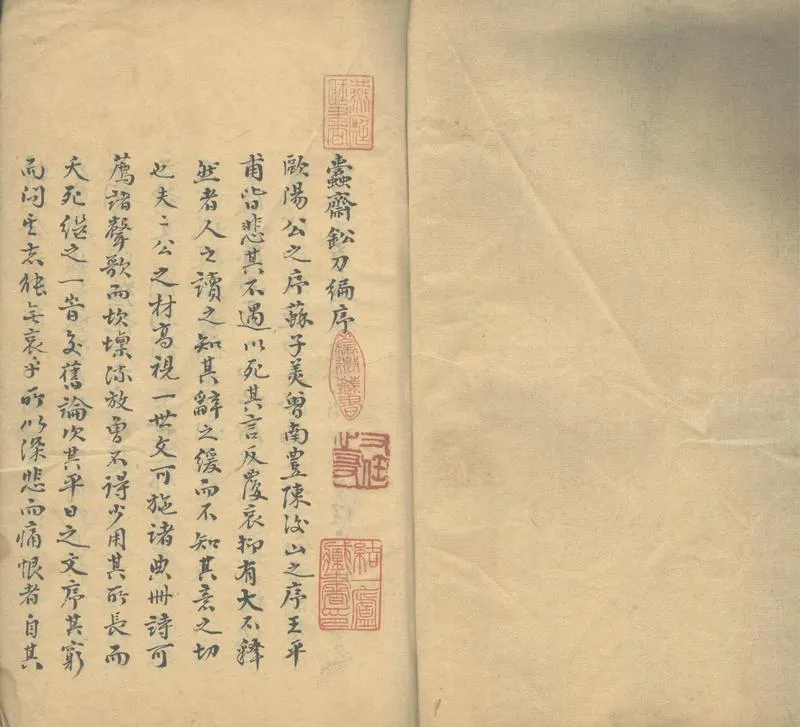 蠹齋鈆刀編序
歐陽公之序蘇子美曾南豐陳後山之序王平
甫皆悲其不遇以死其言反覆哀抑有大不釋
然者人之讀之知其辭之緩而不知其意之切
也夫二公之材高視一世文可施諸典冊詩可
薦諸聲歌而坎壈流放曾不得少用其所長而
夭死繼之一時交舊論次其平日之文序其窮
而閔其志能無哀乎所以深悲而痛恨者自其
結一廬藏書印